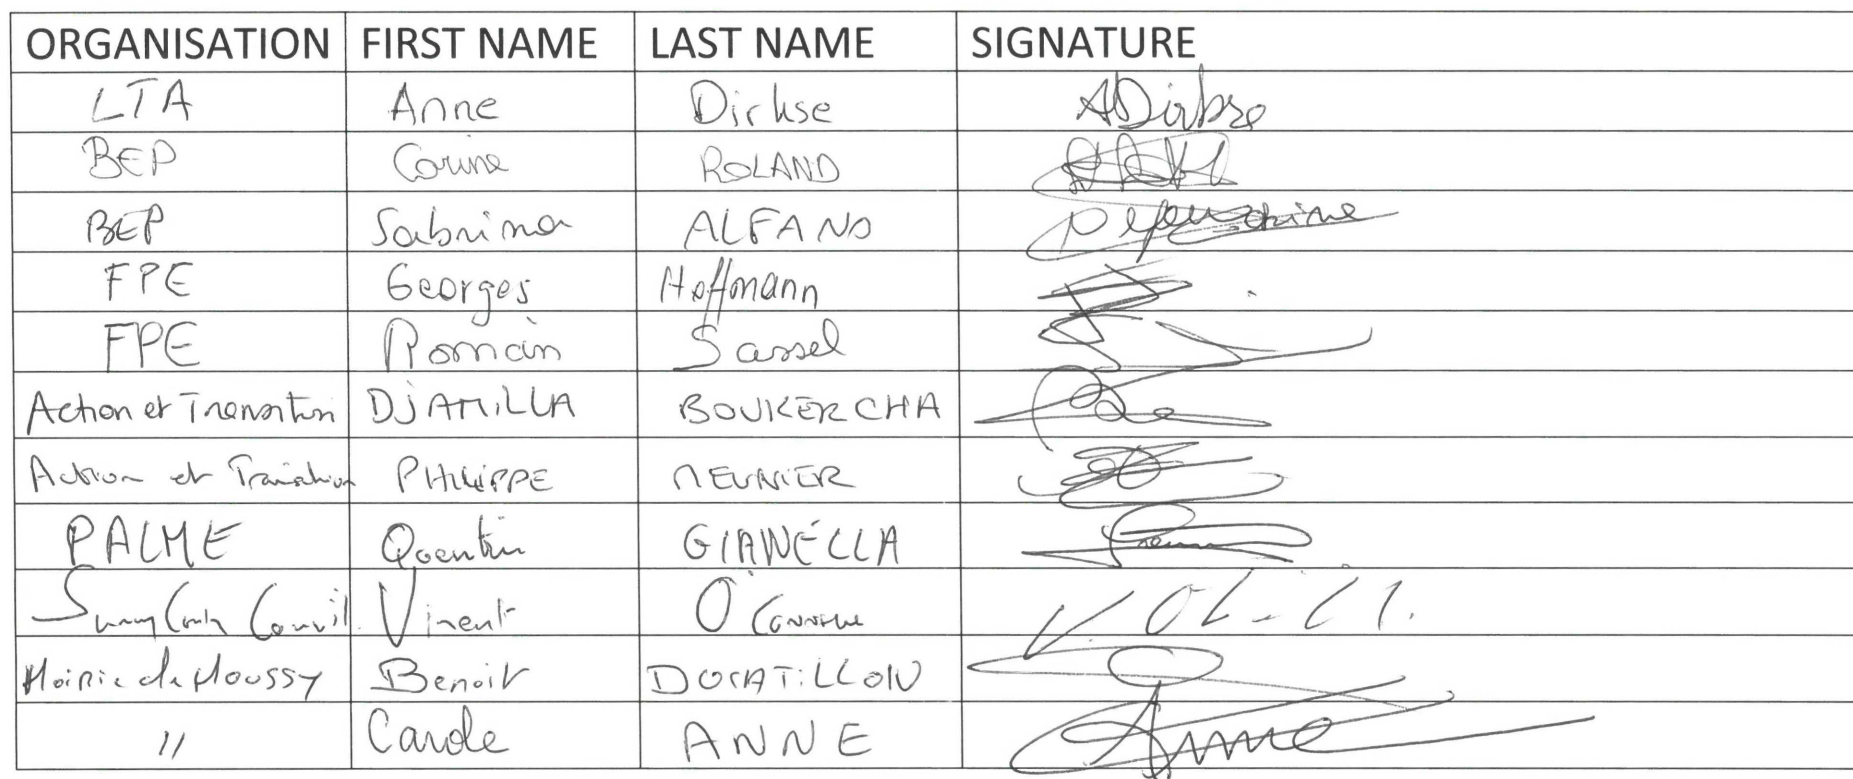 ORGANISATION FIRST NAME LAST NAME SIGNATURE
LTA Anne Dirkse ADirkse
BEP Corine ROLAND
BEP Sabrina ALFANO
FPE Georges Hoffmann
FPE Romain Sassel
Action et Transition DJAMILLA BOUKERCHA
Action et Transition PHILIPPE MEUNIER
PALME Quentin GIANNÉLLA
Surrey County Council Vincent O'Connell
Mairie de Moussy Benoit
" Carole ANNE Anne